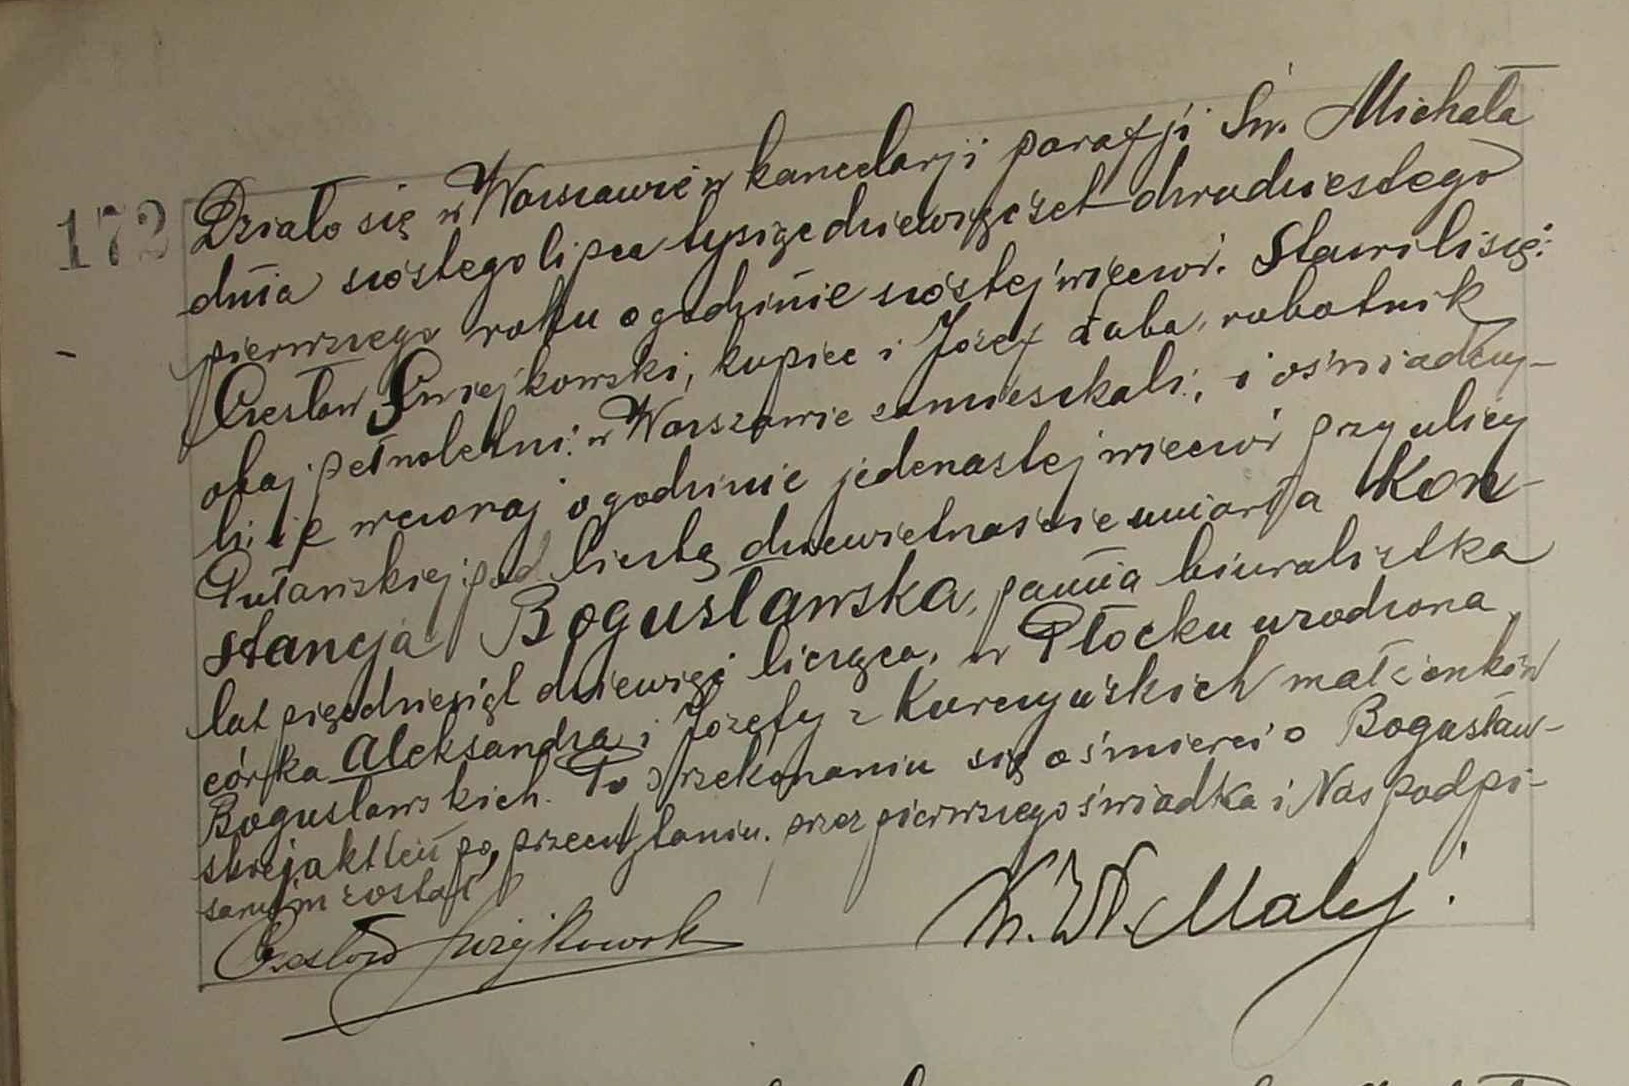 172
Działo się w Warszawie w kancelarji parafji Św. Michała
dnia szóstego lipca tysiąc dziewięćset dwudziestego
pierwszego roku o godzinie szóstej wieczór. Stawili się:
Czesław Gwiejkowski, kupiec i Józef Łaba, robotnik
obaj pełnoletni w Warszawie zamieszkali, i oświadczy-
li, iż wczoraj o godzinie jedenastej wieczór przy ulicy
Puławskiej pod liczbą dziewiętnaście umarła Kon-
stancja Bogusławska, panna biuralistka
lat pięćdziesiąt dziewięć licząca, w Płocku urodzona,
córka Aleksandra i Józefy z małżonków
Bogusławskich. Po przekonaniu się o śmierci Bogusław-
skiej akt ten po przeczytaniu przez pierwszego świadka i Nas podpi-
sanym został
Czesław
K. W. Maley